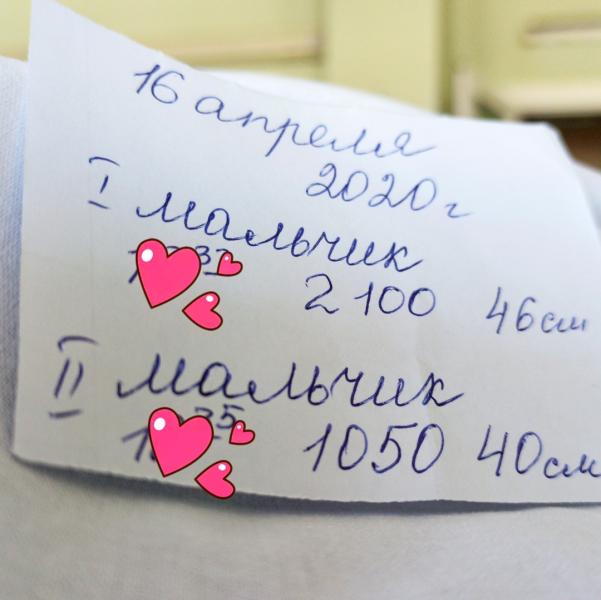 16 апреля
2020г
I мальчик
2100 46см
II мальчик
1050 40см